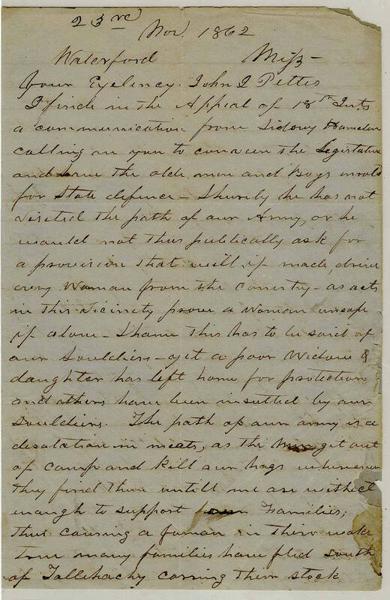 23rd
Nov. 1862
Waterford Miss
Your Exelency John J Pettes
I finde in the Appeal of 18th Inst
a communication from Sidney
calling on you to convein the Legislature
and the olde men and Boys
for State defence - Shurely he has not
visited the path of our Army, or he
would not thus publically ask for
a provision that will if made, drive
evry Woman from the country - as acts
in this vicinity prove a Woman unsafe
if alone - Shame this has to be said of
our Souldiers - yet a poor Widow &
daughter has left home for protection
and others have been insulted by our
Souldiers. The path of our army is a
desolation in meats, as the Men get out
of camp and kill our hogs whenever
they find them untill we are without
enough to support our Families;
thus causing a famon in thire wake
true many families have fled South
of Tallehachy carring there stock